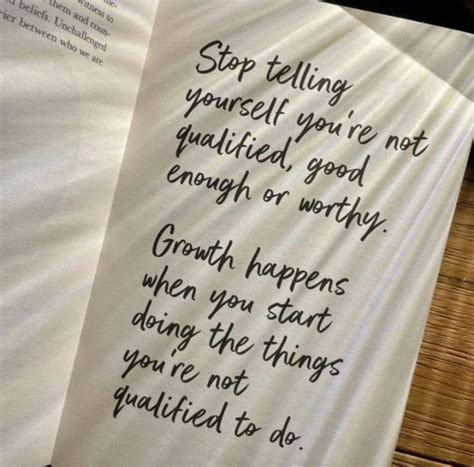 witness to
them and coun-
beliefs. Unchallenged
between who we are
Stop telling
yourself you're not
qualified, good
enough or worthy.
Growth happens
when you start
doing the things
you're not
qualified to do.